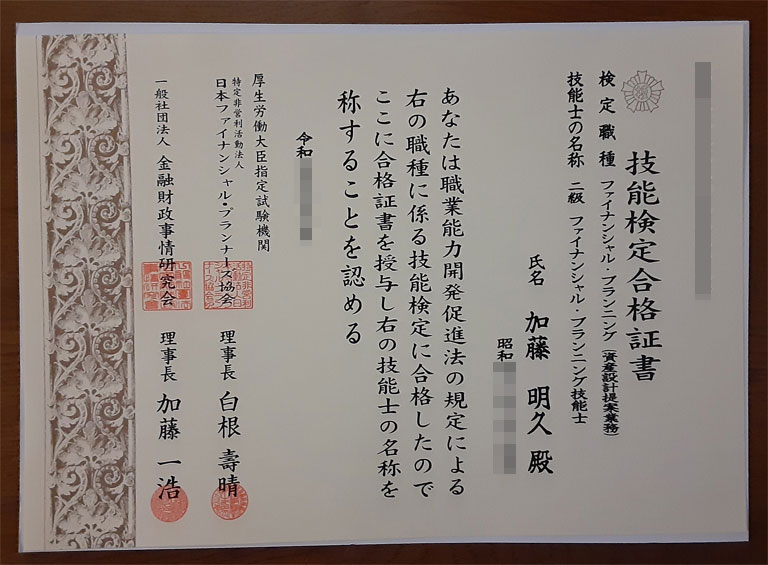 技能検定合格証書
検定職種 ファイナンシャル・プランニング(資産設計提案業務)
技能士の名称 二級 ファイナンシャル・プランニング技能士
氏名 加藤 明久 殿
昭和
あなたは職業能力開発促進法の規定による
右の職種に係る技能検定に合格したので
ここに合格証書を授与し右の技能士の名称を
称することを認める
令和
厚生労働大臣指定試験機関
特定非営利活動法人
日本ファイナンシャル・プランナーズ協会 理事長 白根 壽晴
一般社団法人 金融財政事情研究会 理事長 加藤 一浩